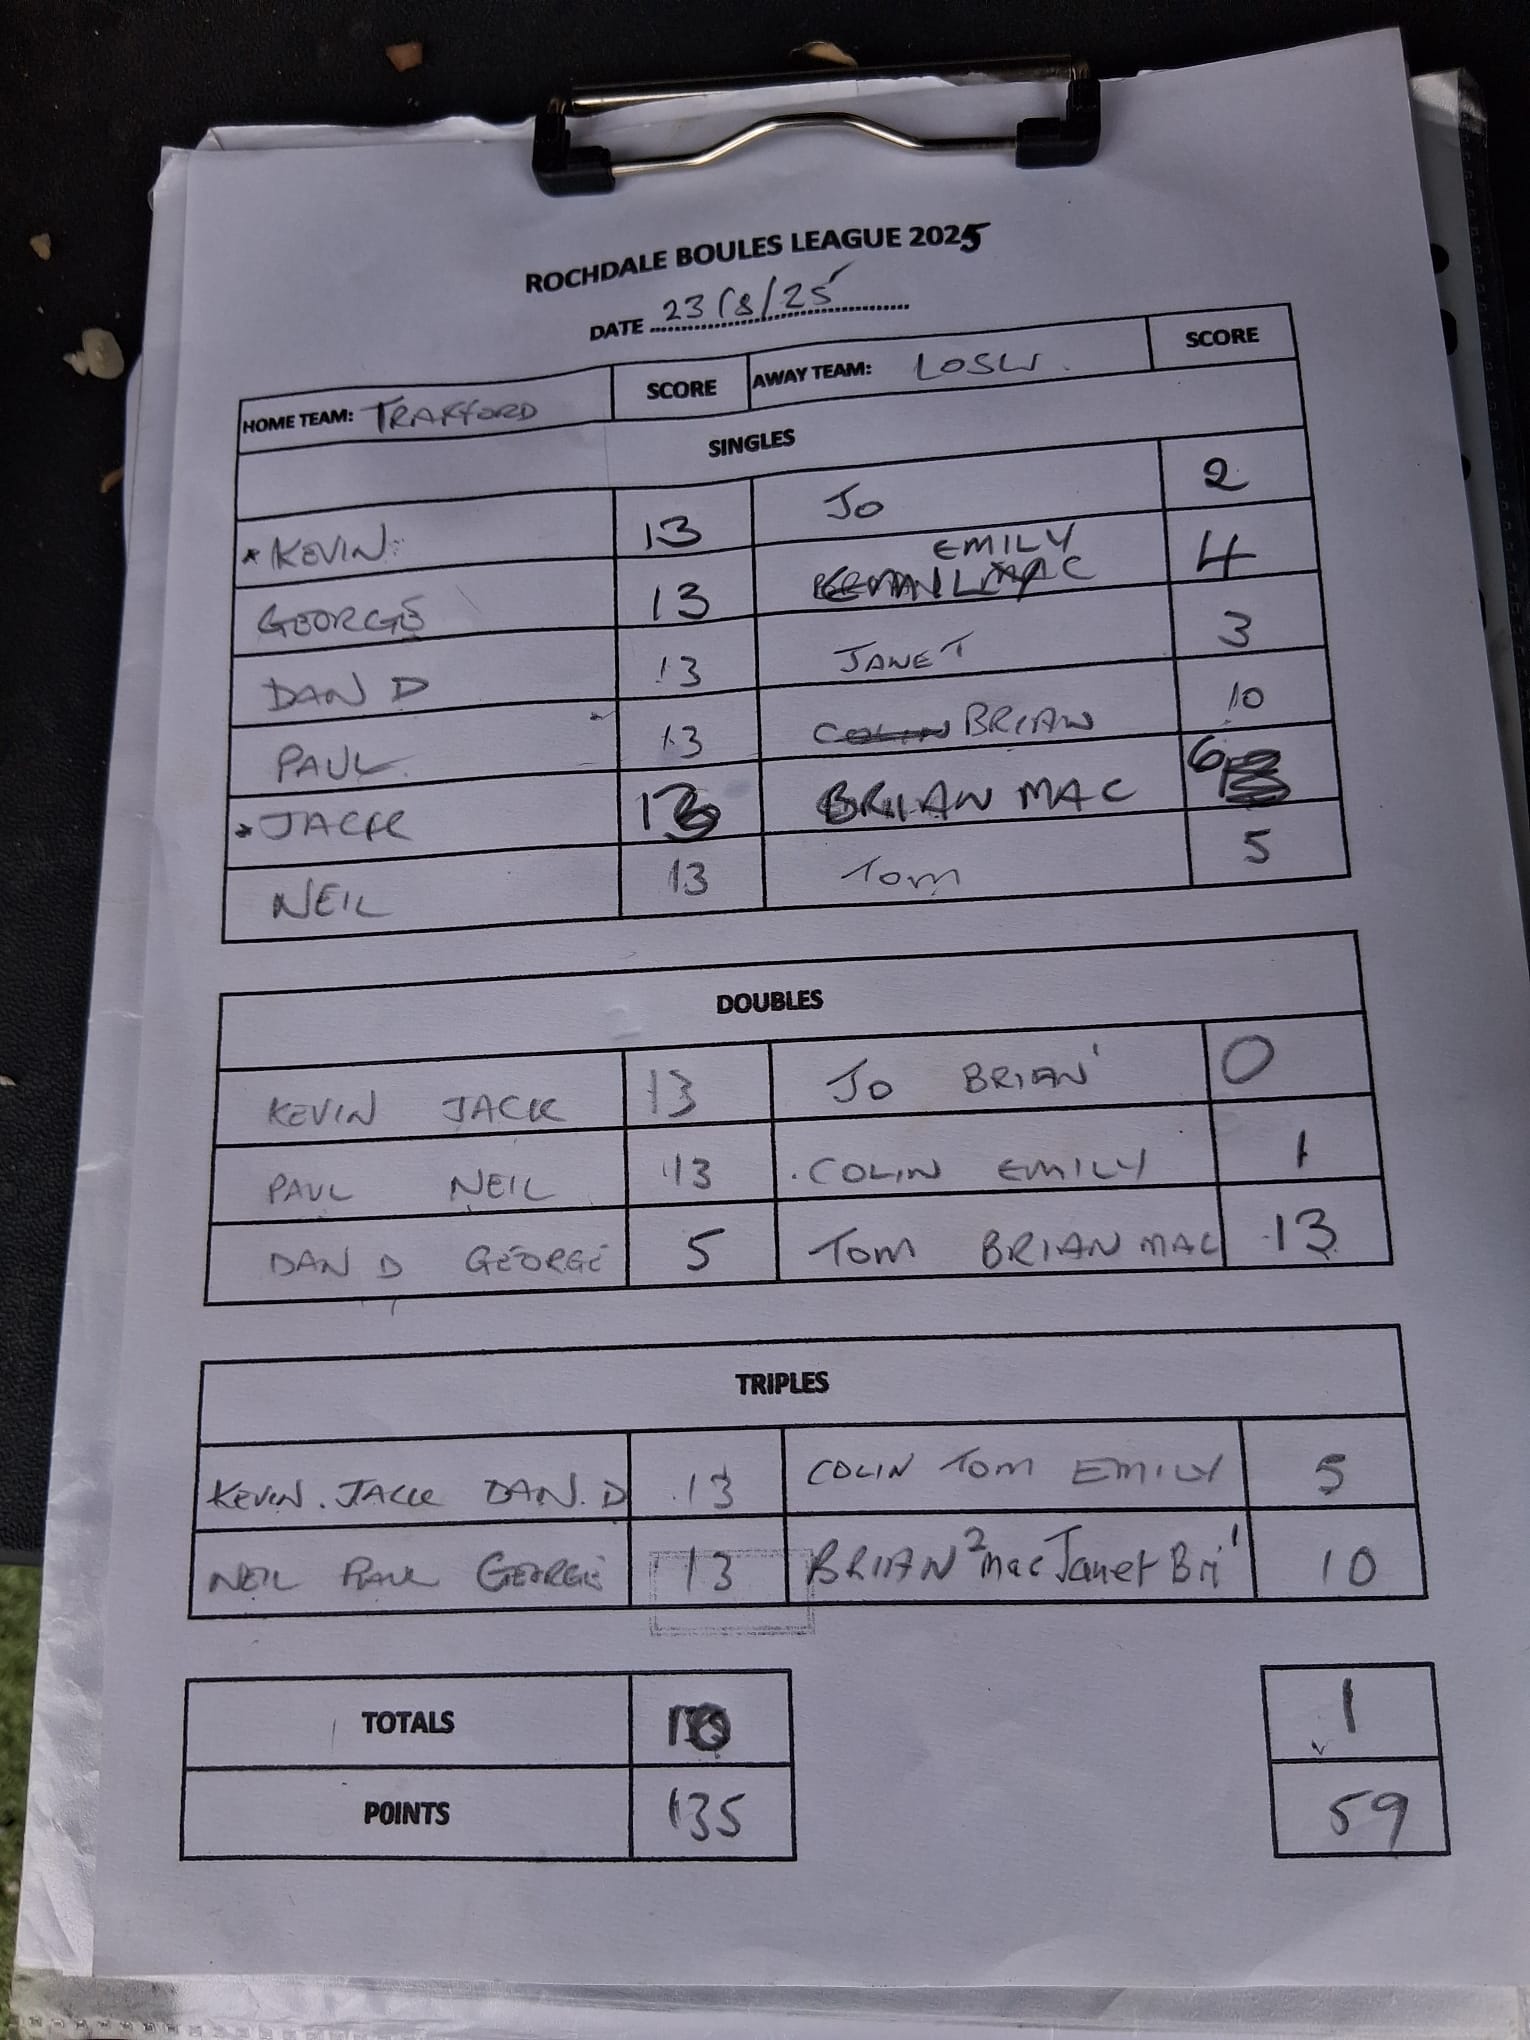 ROCHDALE BOULES LEAGUE 2025
DATE 23/8/25
HOME TEAM: TRAFFORD SCORE AWAY TEAM: LOSW. SCORE
SINGLES
* KEVIN 13 JO 2
GEORGE 13 EMILY 4
DAN D 13 JANET 3
PAUL 13 COLIN BRIAN 10
JACK 13 BRIAN MAC 6
NEIL 13 Tom 5
DOUBLES
KEVIN JACK 13 JO BRIAN' 0
PAUL NEIL 13 COLIN EMILY 1
DAN D GEORGE 5 Tom BRIAN MAC 13
TRIPLES
KEVIN. JACK DAN. D 13 COLIN Tom EMILY 5
NEIL PAUL GEORGE 13 BRIAN 2 Mac Janet Bri 1 10
TOTALS 10 1
POINTS 135 59